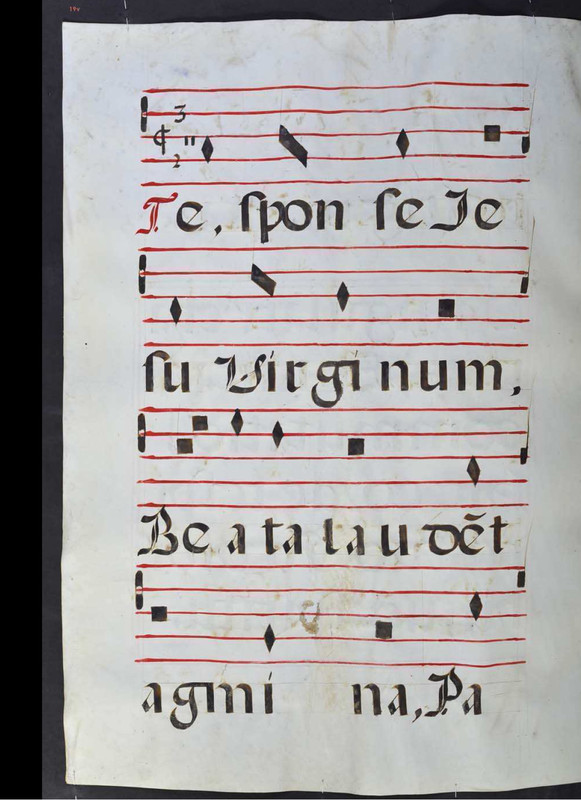 19v
3
2
Te, ſpon ſe Ie
ſu Virgi num,
Be a ta lau dẽt
agmi na, Pa